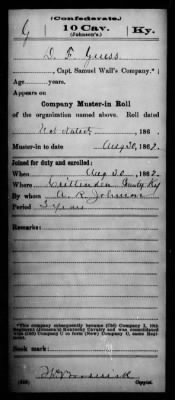 (Confederate.)
G 10 Cav. Ky.
(Johnson's.)
D. F. Guess
, Capt. Samuel Wall's Company.*
Age years.
Appears on
Company Muster-in Roll
of the organization named above. Roll dated
Not dated, 186 .
Muster-in to date Aug 30, 1862.
Joined for duty and enrolled:
When Aug 30, 1862.
Where Crittenden County Ky
By whom A. R. Johnson
Period 3 years
Remarks:
*This company subsequently became (Old) Company I, 10th
Regiment (Johnson's) Kentucky Cavalry and was consolidated
with (Old) Company C to form (New) Company C, same Regi-
ment.
Book mark:
Copyist.